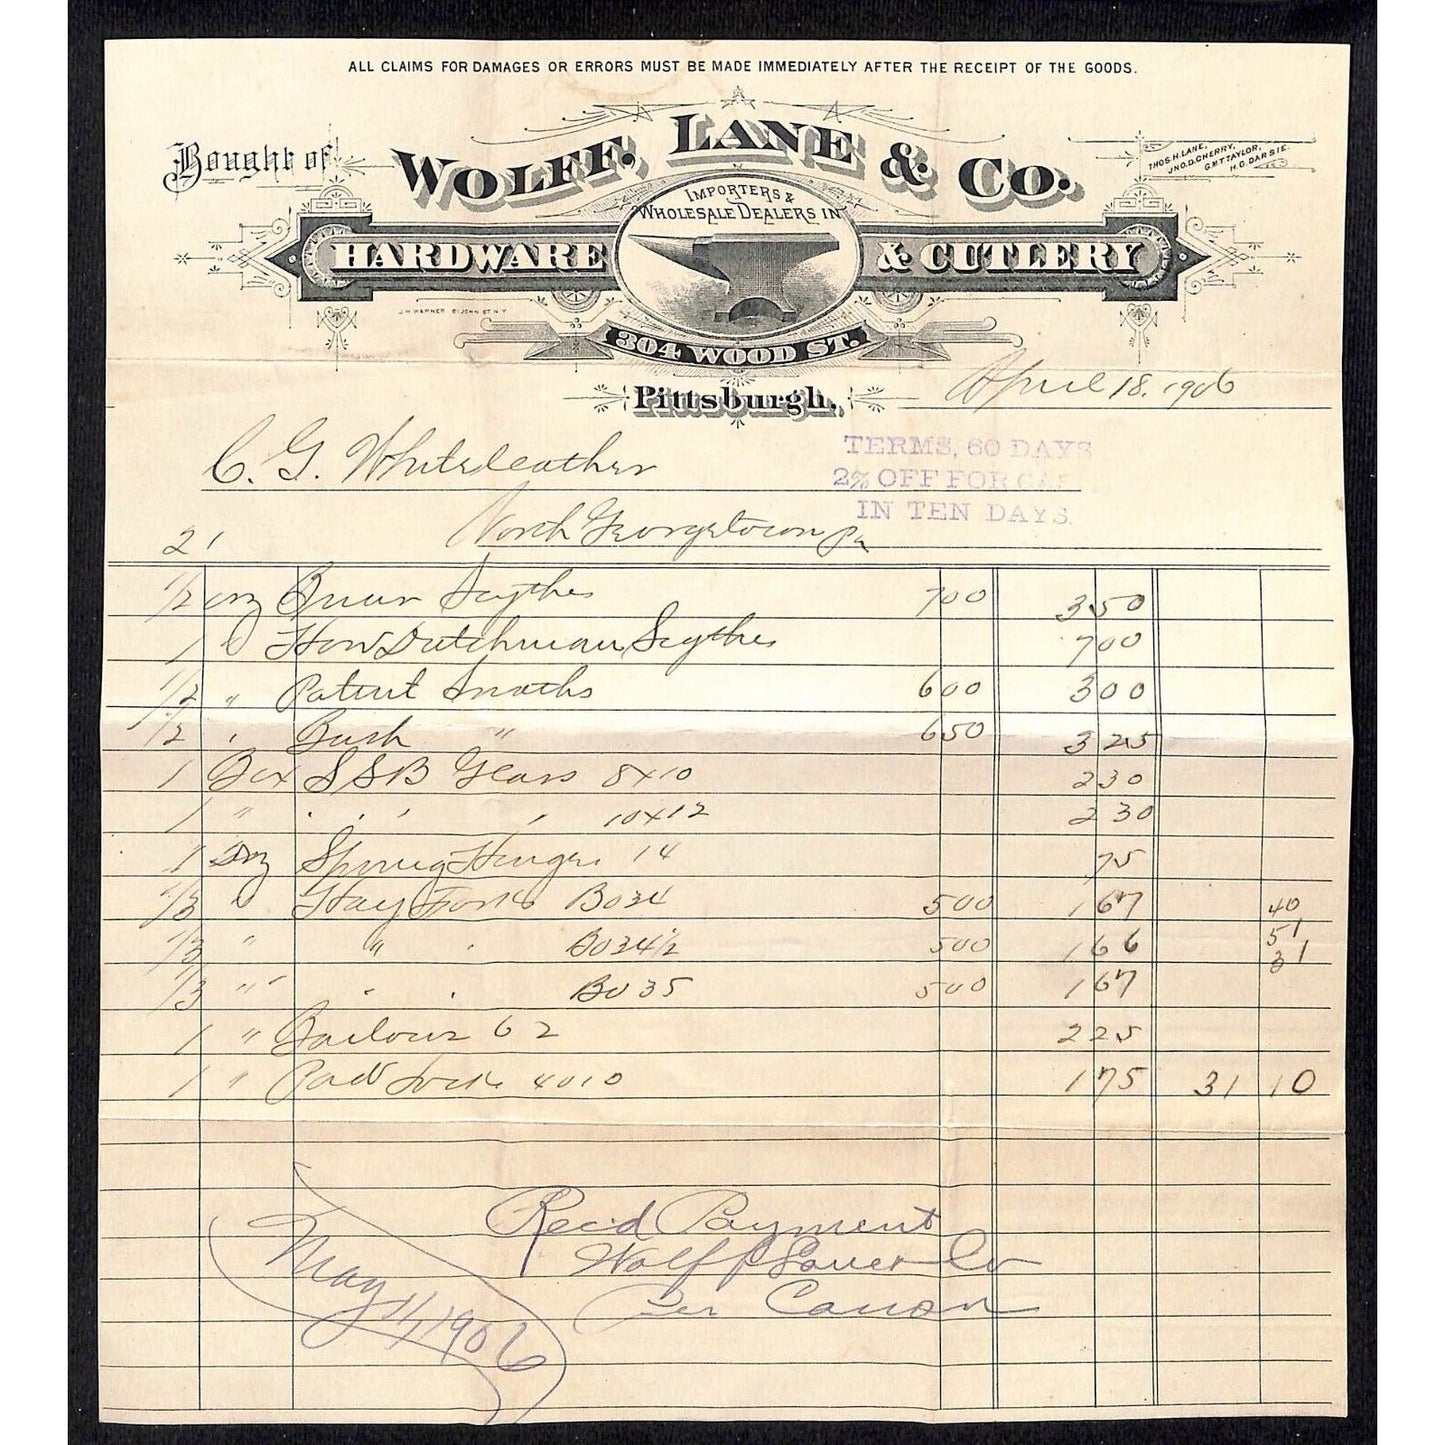 ALL CLAIMS FOR DAMAGES OR ERRORS MUST BE MADE IMMEDIATELY AFTER THE RECEIPT OF THE GOODS.
Bought of WOLFF, LANE & CO.
THOS. H. LANE,
JNO. D. CHERRY,
G. M. T. TAYLOR,
H. C. DARSIE.
IMPORTERS &
WHOLESALE DEALERS IN
HARDWARE & CUTLERY
J. H. WARNER 61 JOHN ST N.Y.
304 WOOD ST.
Pittsburgh, April 18. 1906
C. G. Whiteleather
TERMS, 60 DAYS
2% OFF FOR CASH
IN TEN DAYS.
North Georgetown
21
1/2 Doz Briar Scythes 700 350
1 " Dutchman Scythes 700
1/2 " Patent Snaths 600 300
1/2 " Bush " 650 325
1 Box S S B Glass 8x10 230
1 " " " " 10x12 230
1 Doz Spring Hinges 14 75
1/3 " Hay Forks B034 500 167 40
1/3 " " " B034 1/2 500 166 51
31
1/3 " " " B035 500 167
1 " 62 225
1 " Pad Locks 4010 175 31 10
Recd Payment
Wolff Co
Per
May 11, 1906